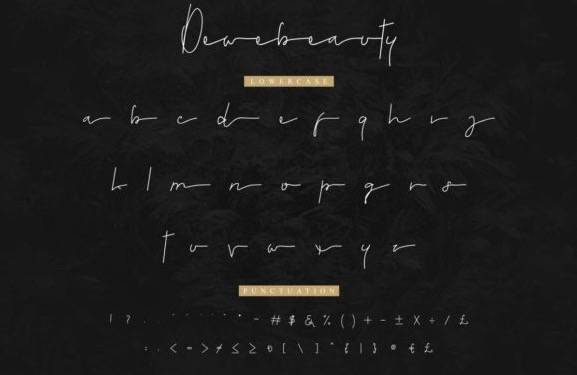 Dewebeauty
LOWERCASE
a b c d e f g h i j
k l m n o p q r s
t u v w x y z
PUNCTUATION
! ? # $ & % ( ) + - ± × ÷ / £
: . < = > ≠ ≤ ≥ [ \ ] ^ { | } € £